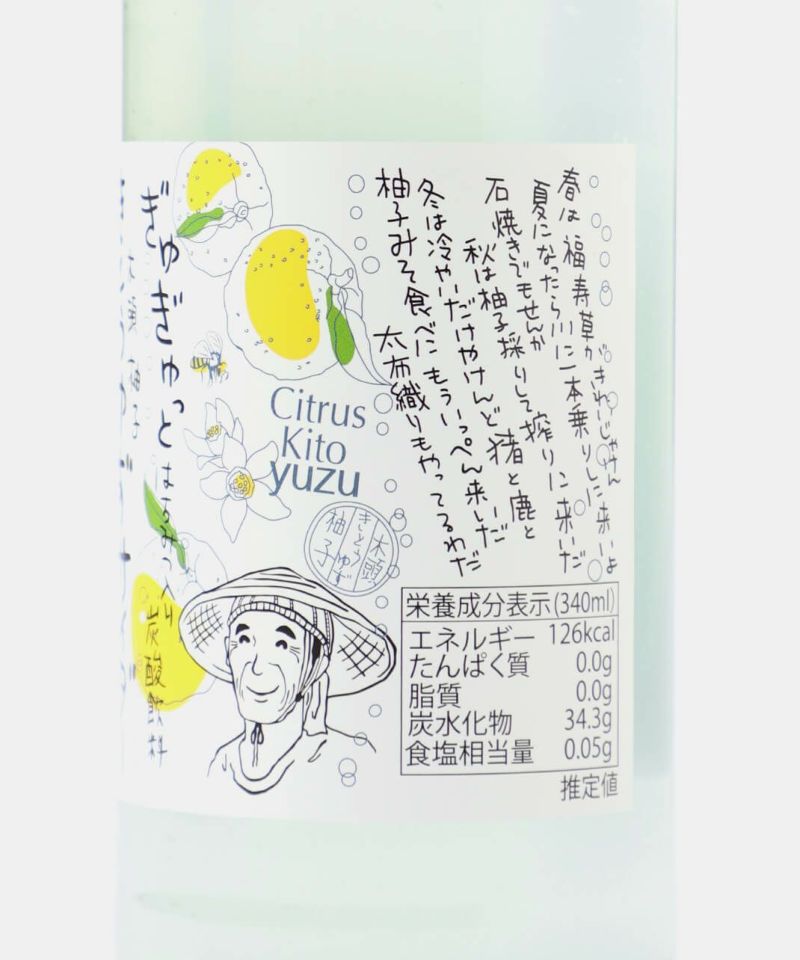 春は福寿草がきれーじゃけん
夏になったら川に一本乗りしに来いよ
石焼きでもせんか
秋は柚子採りして搾りに来いだ
冬は冷やいだけやけんど猪と鹿と
柚子みそ食べにもういっぺん来しだ
太布織りもやってるわだ
ぎゅぎゅっと
はちみつ入り
炭酸飲料
Citrus
Kito
yuzu
木頭
きとうゆず
柚子
栄養成分表示(340ml)
エネルギー 126kcal
たんぱく質 0.0g
脂質 0.0g
炭水化物 34.3g
食塩相当量 0.05g
推定値